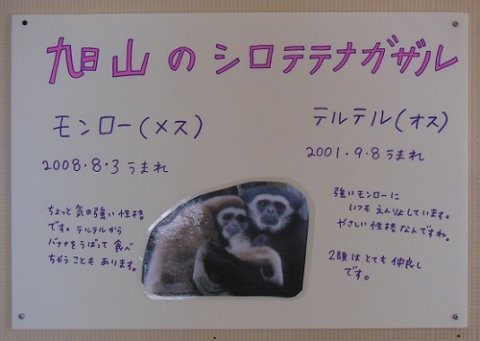 旭山のシロテテナガザル
モンロー(メス)
2008・8・3 うまれ
ちょっと気の強い性格
です。テルテルから
バナナをうばって食べ
ちゃうこともあります。
テルテル(オス)
2001・9・8 うまれ
強いモンローに
いつもえんりょしています。
やさしい性格なんですね。
2頭はとても仲良し
です。